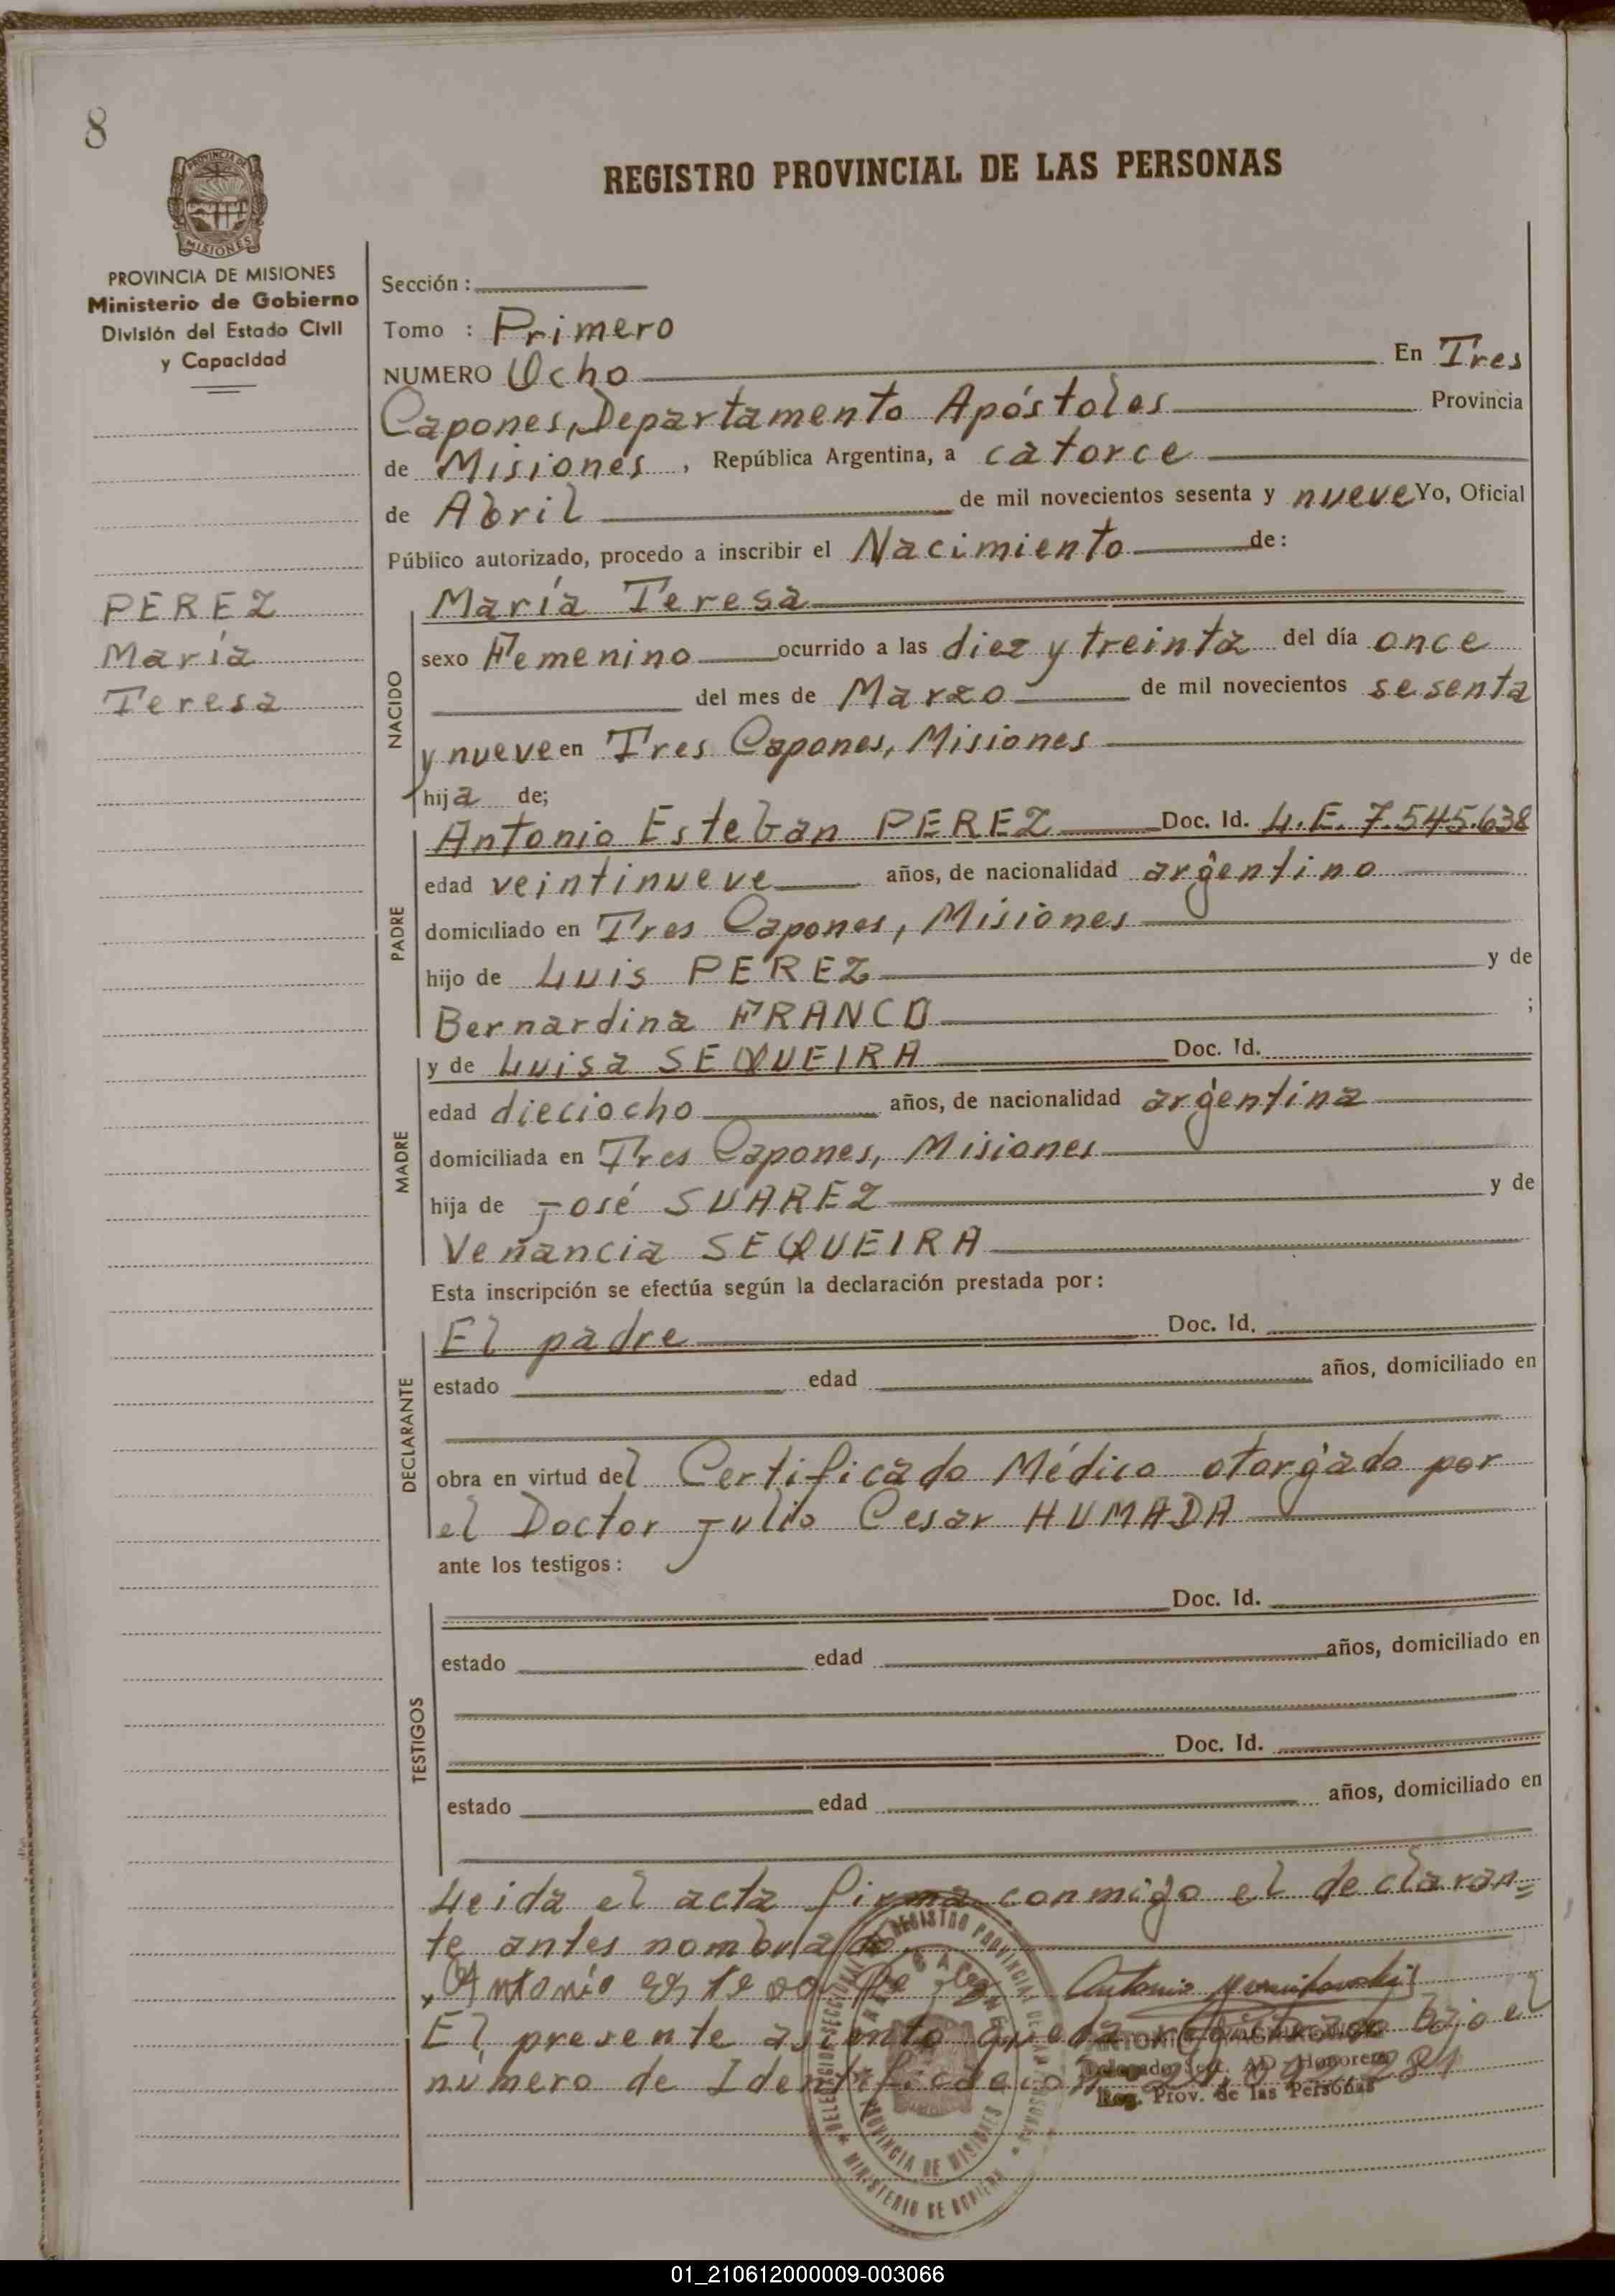 8
PROVINCIA DE MISIONES
REGISTRO PROVINCIAL DE LAS PERSONAS
PROVINCIA DE MISIONES
Ministerio de Gobierno
División del Estado Civil
y Capacidad
Sección :
Tomo : Primero
NUMERO Ocho En Tres
Capones, Departamento Apóstoles Provincia
de Misiones, República Argentina, a catorce
de Abril de mil novecientos sesenta y nueve Yo, Oficial
Público autorizado, procedo a inscribir el Nacimiento de:
PEREZ
María
Teresa
NACIDO
María Teresa
sexo Femenino ocurrido a las diez y treinta del día once
del mes de Marzo de mil novecientos sesenta
y nueve en Tres Capones, Misiones
hija de;
PADRE
Antonio Esteban PEREZ Doc. Id. L.E. 7.545.638
edad veintinueve años, de nacionalidad argentino
domiciliado en Tres Capones, Misiones
hijo de Luis PEREZ y de
Bernardina FRANCO ;
MADRE
y de Luisa SEQUEIRA Doc. Id.
edad dieciocho años, de nacionalidad argentina
domiciliada en Tres Capones, Misiones
hija de José SUAREZ y de
Venancia SEQUEIRA
Esta inscripción se efectúa según la declaración prestada por:
DECLARANTE
El padre Doc. Id.
estado edad años, domiciliado en
obra en virtud del Certificado Médico otorgado por
el Doctor Julio Cesar HUMADA
ante los testigos:
TESTIGOS
Doc. Id.
estado edad años, domiciliado en
Doc. Id.
estado edad años, domiciliado en
Leida el acta firma conmigo el declaran=
te antes nombrado
Antonio
Antonio
El presente asiento queda registrado bajo el
número de Identificación
Delegado Secc. AD-Honorem
Reg. Prov. de las Personas
REGISTRO PROVINCIAL DE LAS PERSONAS
PROVINCIA DE MISIONES
MINISTERIO DE GOBIERNO
01_210612000009-003066